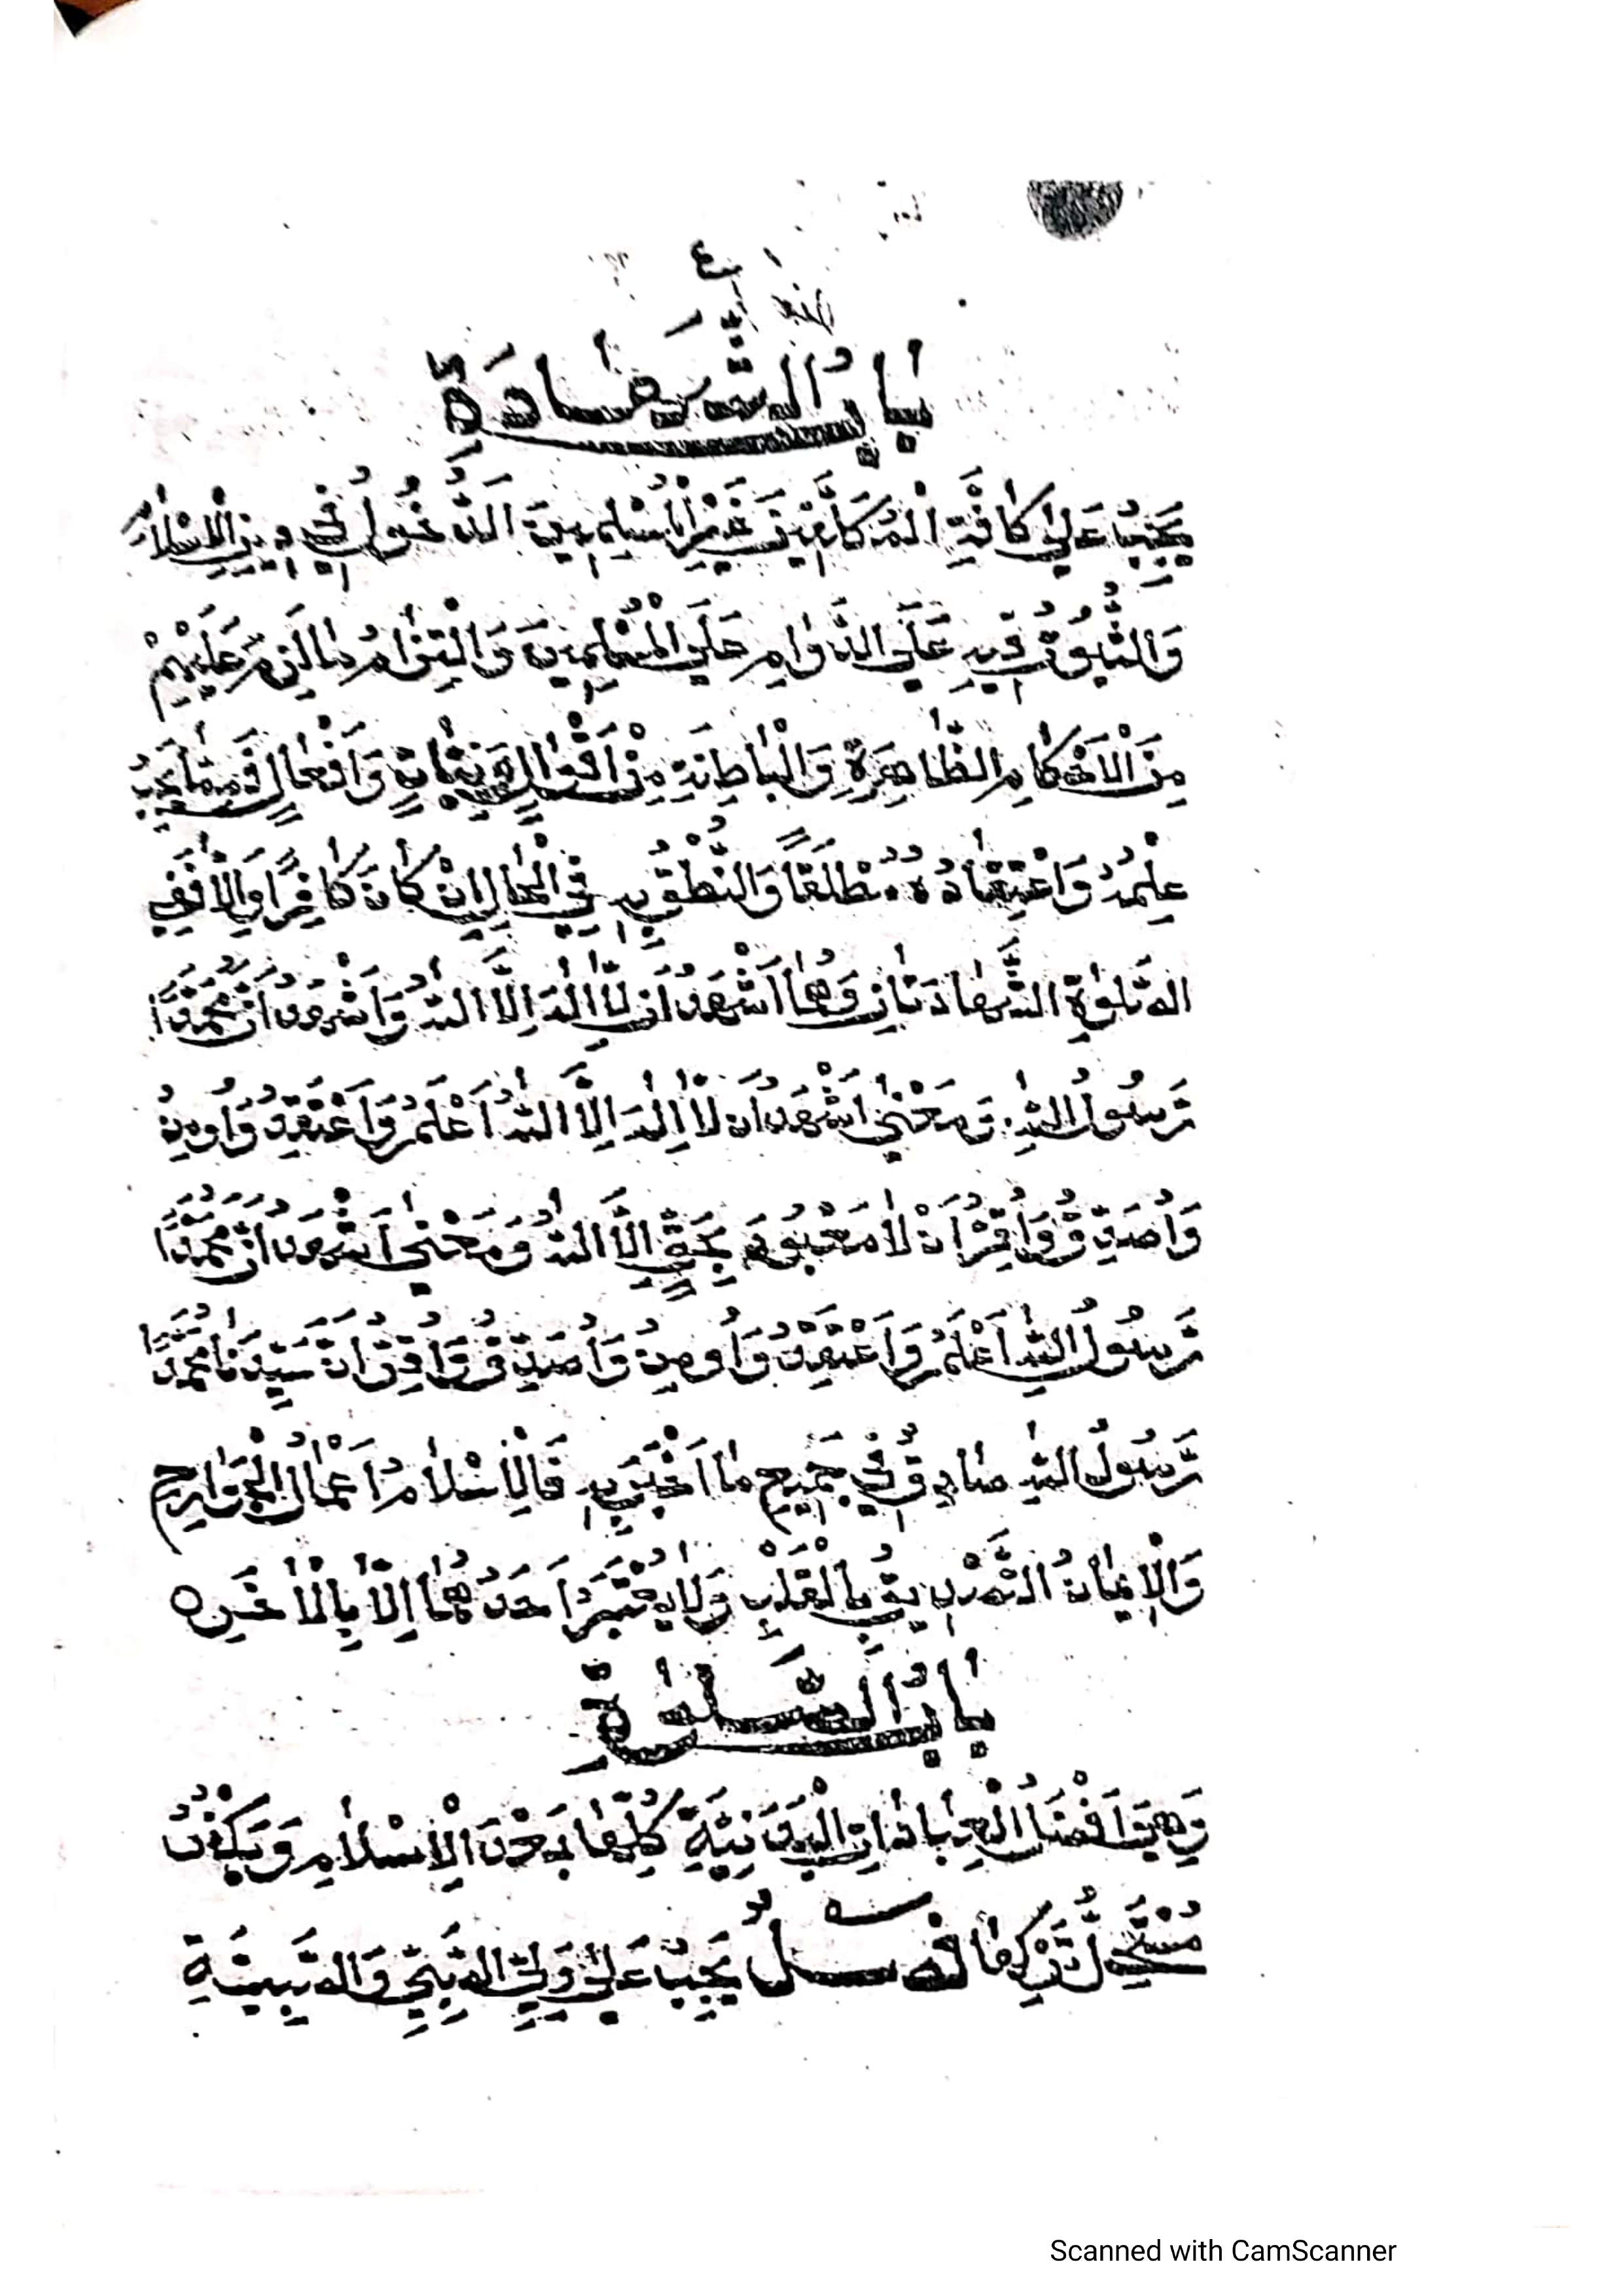 ٤
بَابُ الشَّهَادَةِ
يَجِبُ عَلَىٰ كَافَّةِ الْمُكَلَّفِينَ غَيْرِ الْمُسْلِمِينَ الدُّخُولُ فِي دِينِ الْاِسْلَامِ
وَالثُّبُوْتُ فِيهِ عَلَى الدَّوَامِ عَلَى الْمُسْلِمِينَ وَالْتِزَامُ مَا لَزِمَ عَلَيْهِمْ
مِنَ الْاَحْكَامِ الظَّاهِرَةِ وَالْبَاطِنَةِ مِنْ اَقْوَالٍ وَنِيَّاتٍ وَاَفْعَالٍ فَمِمَّا يَجِبُ
عِلْمُهُ وَاعْتِقَادُهُ مُطْلَقًا وَالنُّطْقُ بِهِ فِي الْحَالِ اِنْ كَانَ كَافِرًا وَاِلَّا فَفِي
الصَّلٰوةِ الشَّهَادَتَانِ وَهُمَا اَشْهَدُ اَنْ لَا اِلٰهَ اِلَّا اللهُ وَاَشْهَدُ اَنَّ مُحَمَّدًا
رَسُوْلُ اللهِ وَمَعْنَى اَشْهَدُ اَنْ لَا اِلٰهَ اِلَّا اللهُ اَعْلَمُ وَاَعْتَقِدُ وَاُومِنُ
وَاُصَدِّقُ وَاُقِرُّ اَنْ لَا مَعْبُودَ بِحَقٍّ اِلَّا اللهُ وَمَعْنَى اَشْهَدُ اَنَّ مُحَمَّدًا
رَسُوْلُ اللهِ اَعْلَمُ وَاَعْتَقِدُ وَاُومِنُ وَاُصَدِّقُ وَاُقِرُّ اَنَّ سَيِّدَنَا مُحَمَّدًا
رَسُوْلُ اللهِ صَادِقٌ فِي جَمِيعِ مَا اَخْبَرَ بِهِ فَالْاِسْلَامُ اَعْمَالُ الْجَوَارِحِ
وَالْاِيمَانُ التَّصْدِيقُ بِالْقَلْبِ وَلَا يُعْتَبَرُ اَحَدُهُمَا اِلَّا بِالْاٰخَرِ ه
بَابُ الصَّلٰوةِ
وَهِيَ اَفْضَلُ الْعِبَادَاتِ الْبَدَنِيَّةِ كُلِّهَا بَعْدَ الْاِسْلَامِ وَيَكْفُرُ
مُسْتَحِلُّ تَرْكِهَا فَصْلٌ يَجِبُ عَلَىٰ وَلِيِّ الصَّبِيِّ وَالصَّبِيَّةِ
Scanned with CamScanner